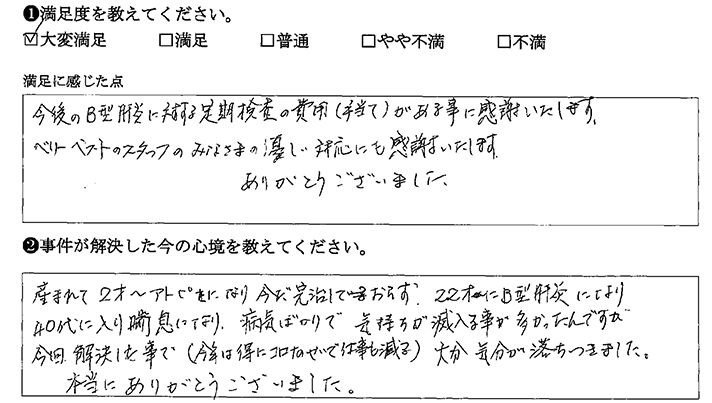 ❶満足度を教えてください。
☑大変満足 □満足 □普通 □やや不満 □不満
満足に感じた点
今後のB型肝炎に対する定期検査の費用(手当て)がある事に感謝いたします。
ベリーベストのスタッフのみなさまの優しい対応にも感謝いたします。
ありがとうございました。
❷事件が解決した今の心境を教えてください。
産まれて2才〜アトピーになり今だ完治しておらず、22才にB型肝炎になり
40代に入り喘息になり、病気ばかりで気持ちが滅入る事が多かったんですが
今回解決した事で(今年は得にコロナのせいで仕事も減る)大分気分が落ちつきました。
本当にありがとうございました。